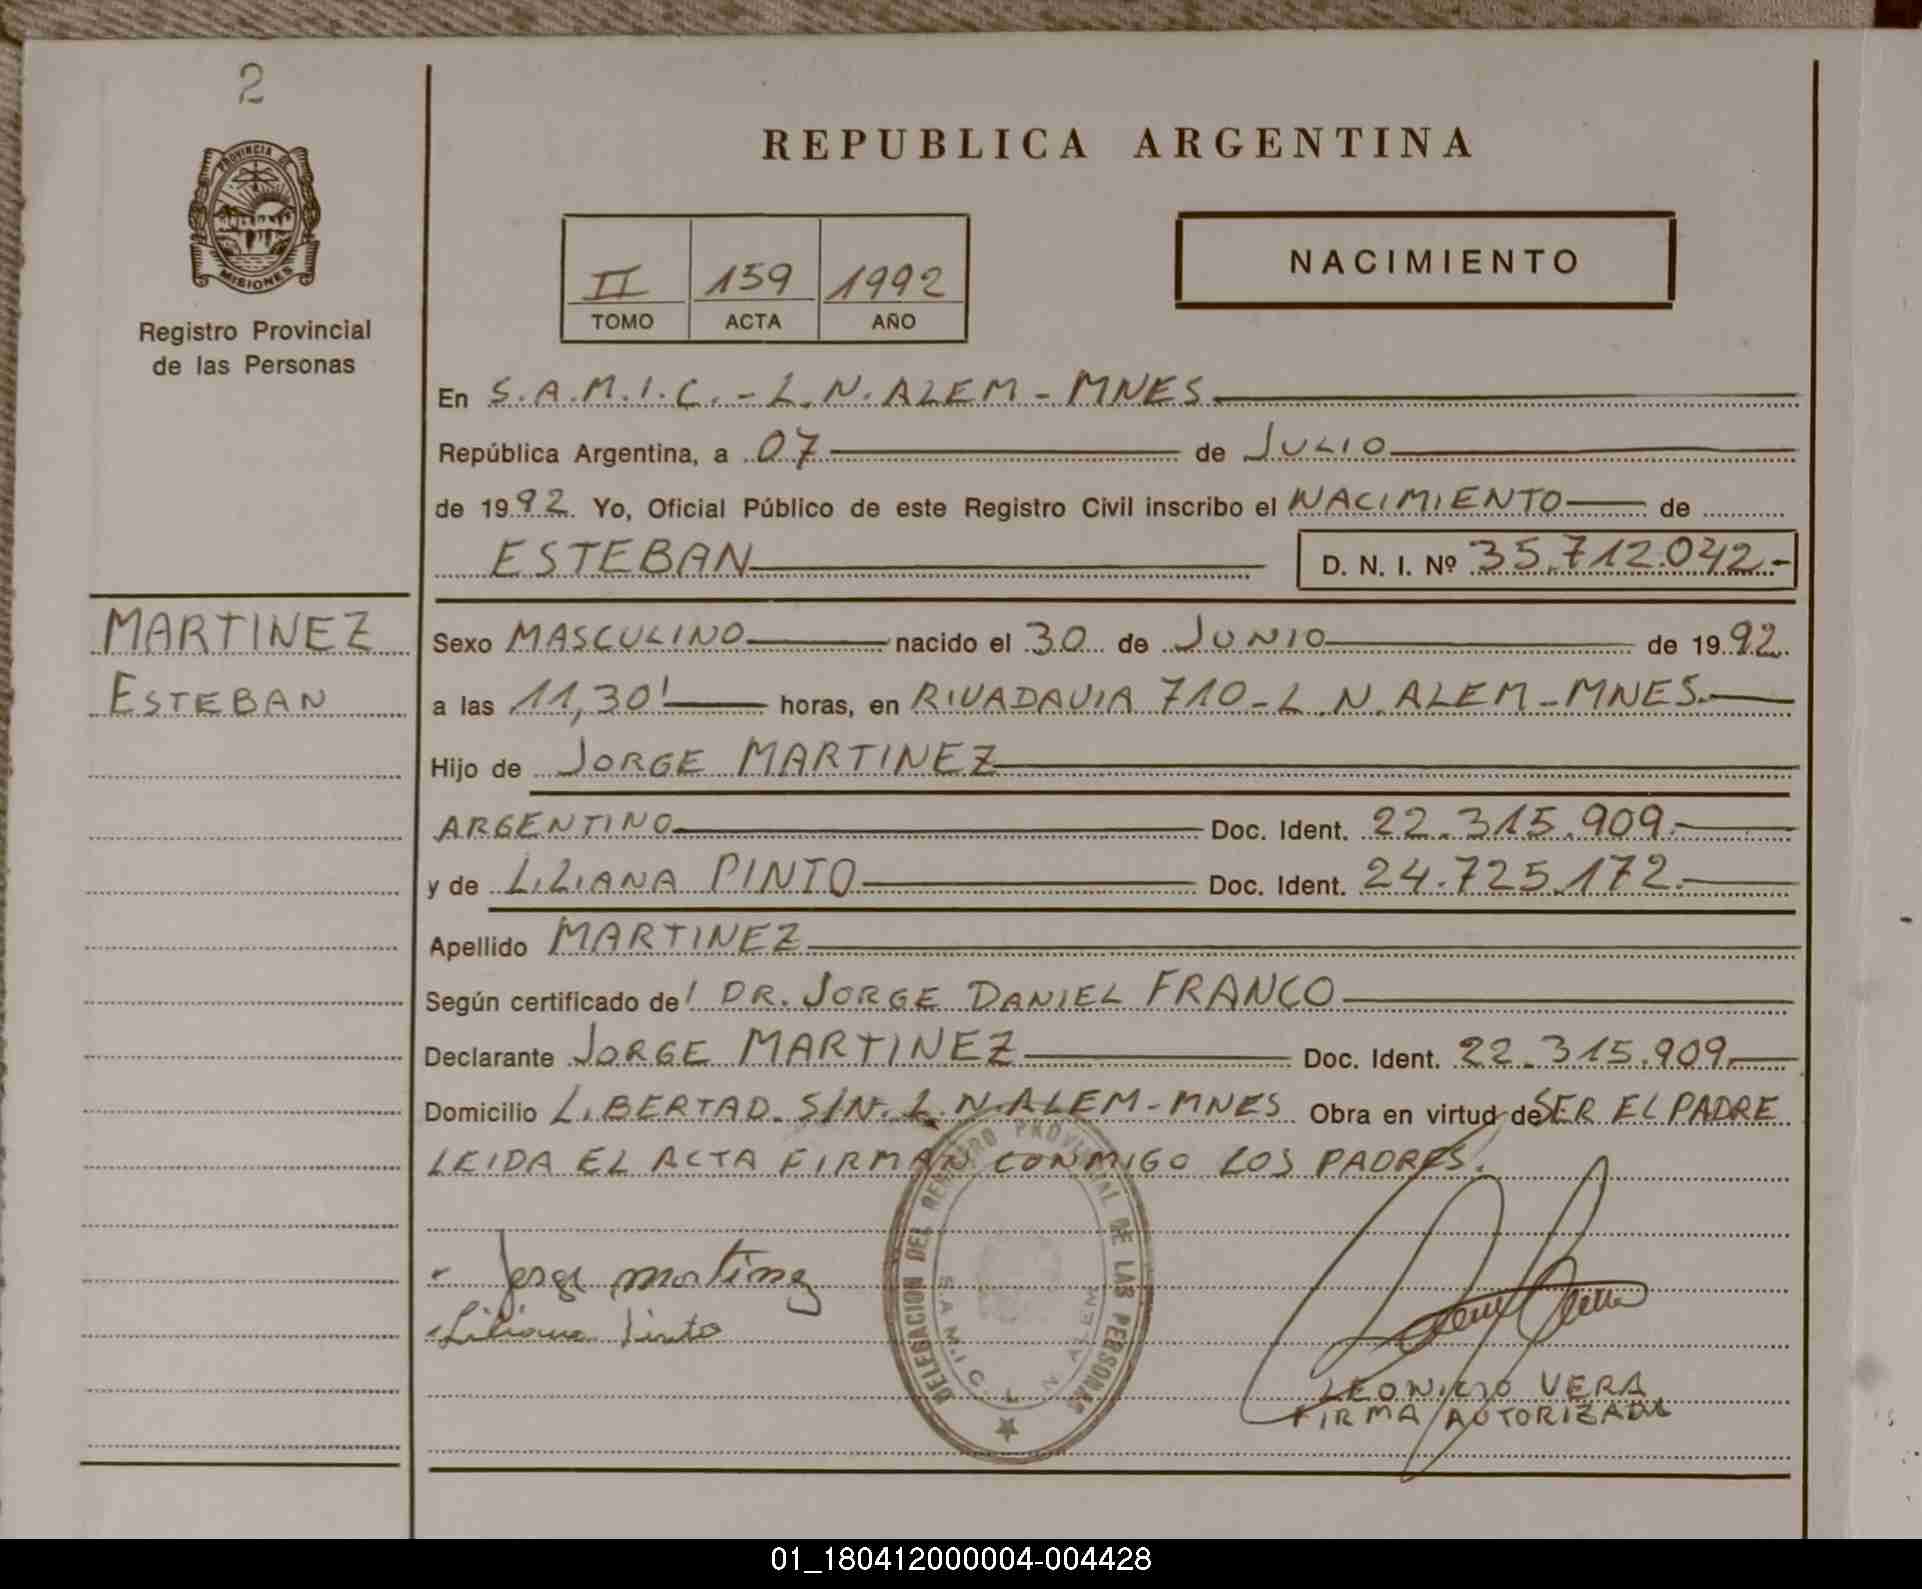 2
PROVINCIA DE
MISIONES
Registro Provincial
de las Personas
MARTINEZ
ESTEBAN
REPUBLICA ARGENTINA
II 159 1992
TOMO ACTA AÑO
NACIMIENTO
En S.A.M.I.C. - L.N. ALEM - MNES
República Argentina, a 07 de JULIO
de 1992. Yo, Oficial Público de este Registro Civil inscribo el NACIMIENTO de
ESTEBAN D. N. I. Nº 35.712.042.-
Sexo MASCULINO nacido el 30 de JUNIO de 1992.
a las 11,30' horas, en RIVADAVIA 710 - L.N. ALEM - MNES.
Hijo de JORGE MARTINEZ
ARGENTINO Doc. Ident. 22.315.909.
y de LILIANA PINTO Doc. Ident. 24.725.172.
Apellido MARTINEZ
Según certificado de' DR. JORGE DANIEL FRANCO
Declarante JORGE MARTINEZ Doc. Ident. 22.315.909.
Domicilio LIBERTAD S/N. L.N. ALEM - MNES Obra en virtud de SER EL PADRE
LEIDA EL ACTA FIRMAN CONMIGO LOS PADRES.
Jorge martinez
Liliana Pinto
DELEGACION DEL REGISTRO PROVINCIAL DE LAS PERSONAS
S.A.M.I.C. L. N. ALEM
LEONICIO VERA
FIRMA AUTORIZADA
01_180412000004-004428